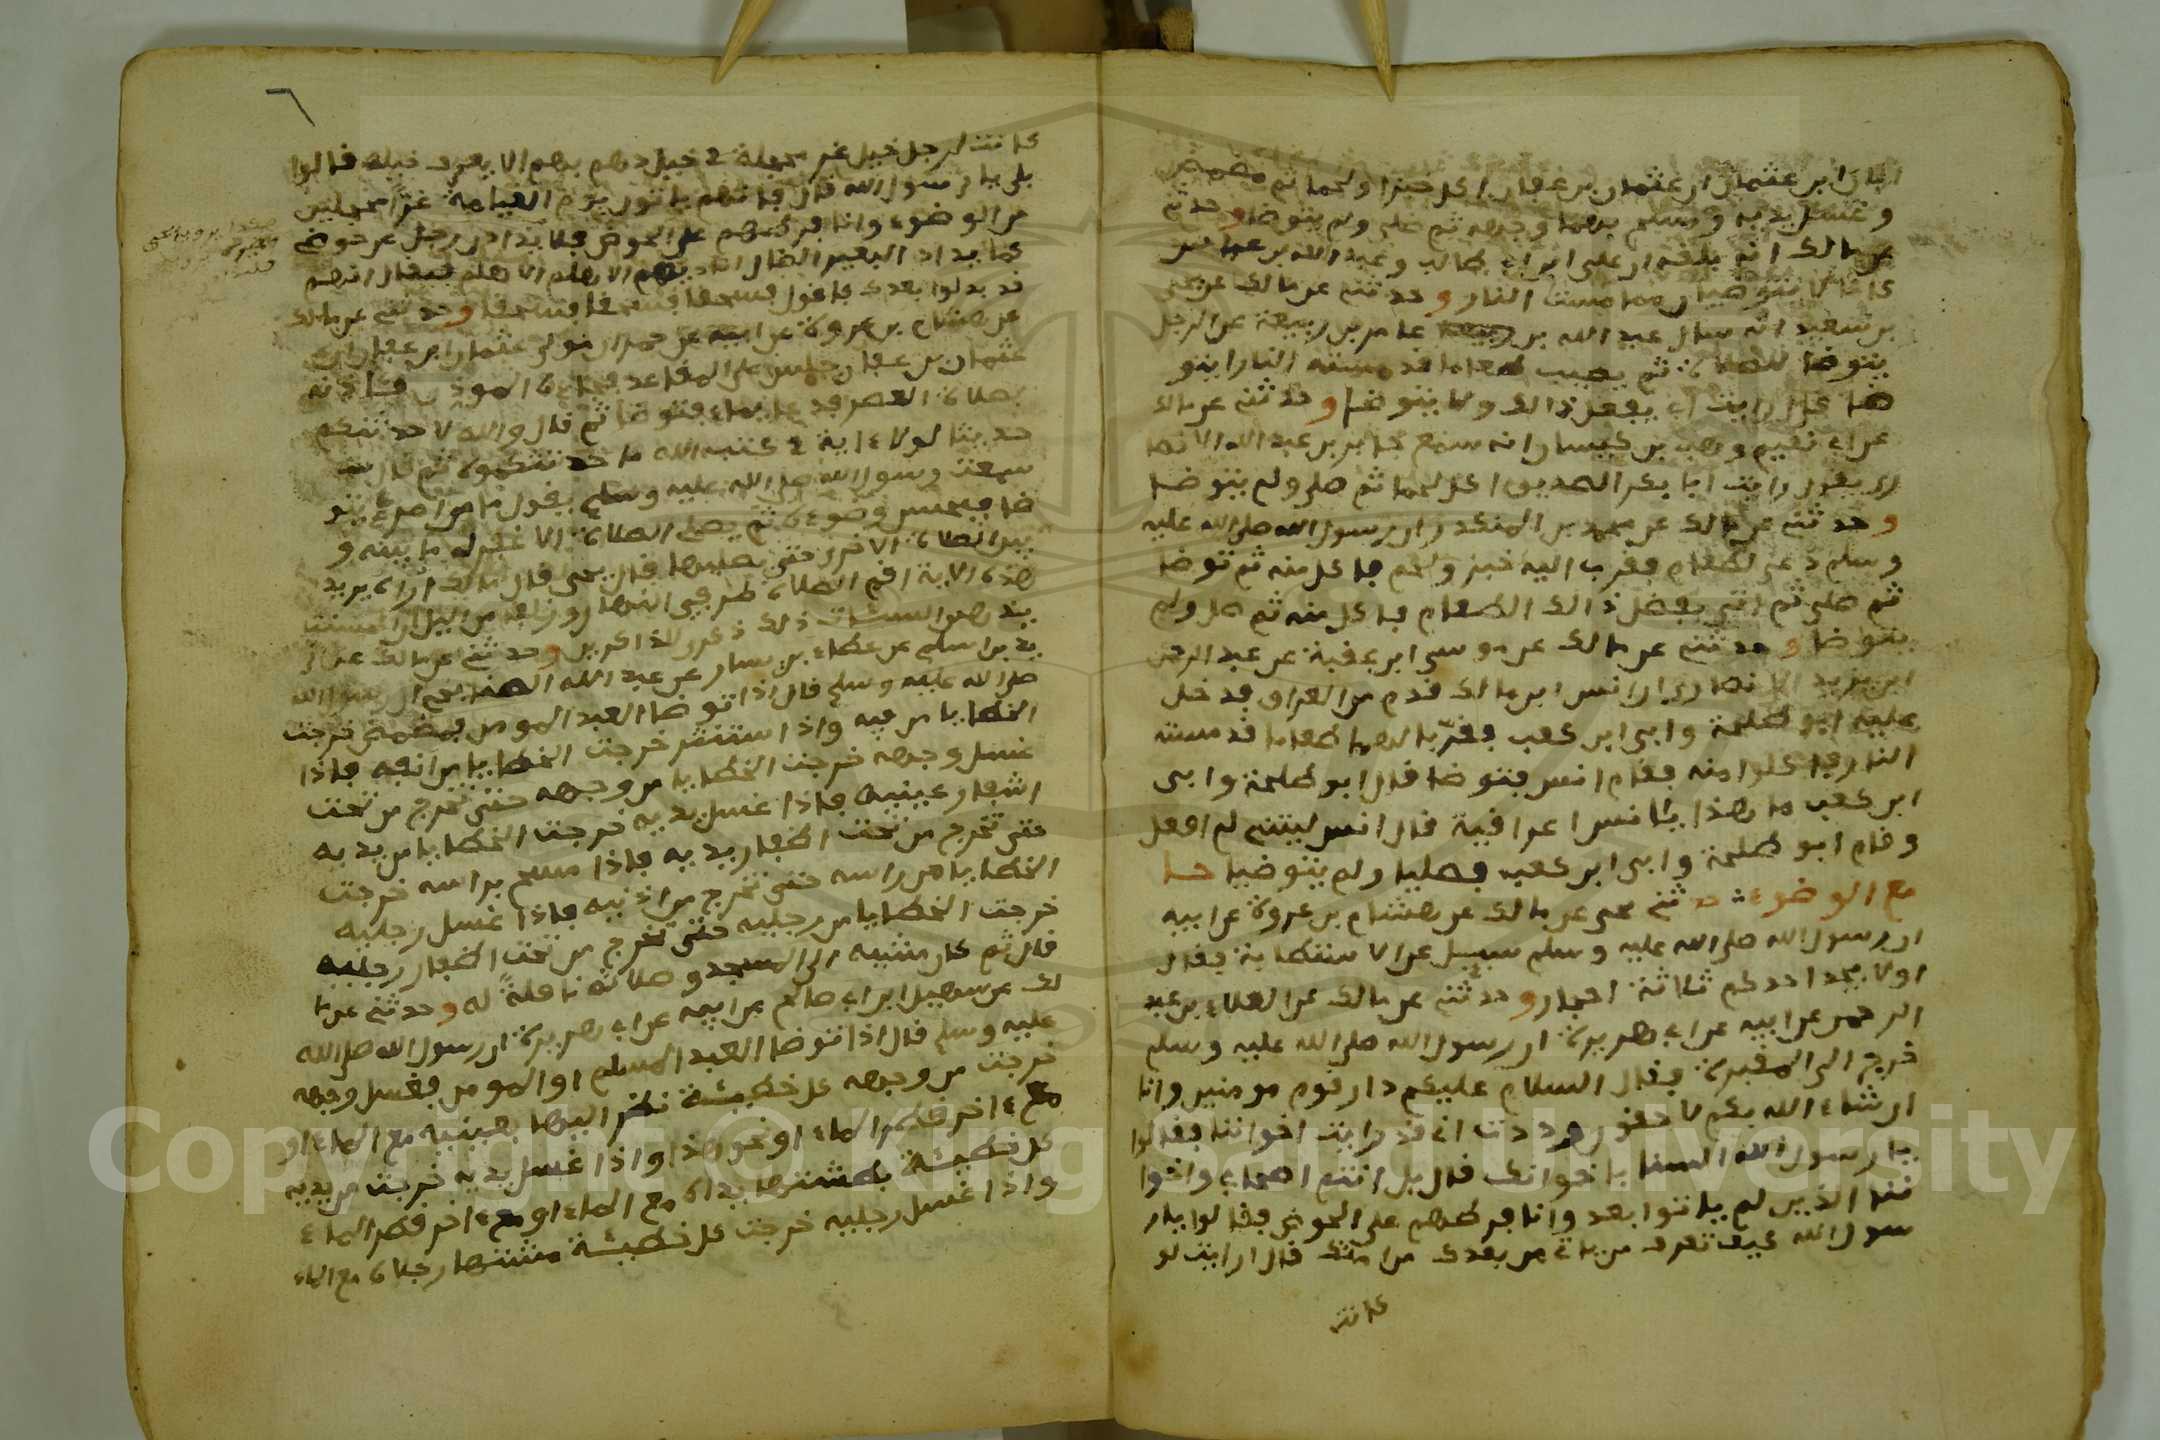 ابان ابن عثمان ان عثمان بن عفان اكل خبزا ولحما ثم مضمض
وغسل يديه ومسح بهما وجهه ثم صلى ولم يتوضا وحدثني
عن مالك انه بلغه ان علي ابن ابي طالب وعبد الله بن عباس
كانا لا يتوضيان مما مست النار وحدثني عن مالك عن يحيى
بن سعيد انه سال عبد الله بن عامر بن ربيعة عن الرجل
يتوضا للصلاة ثم يصيب طعاما قد مسته النار ايتو
ضا قال رايت ابي يفعل ذالك ولا يتوضا وحدثني عن مالك
عن ابي نعيم وهب بن كيسان انه سمع جابر بن عبد الله الانصا
ري يقول رايت ابا بكر الصديق اكل لحما ثم صلى ولم يتوضا
وحدثني عن مالك عن محمد بن المنكدر ان رسول الله صلى الله عليه
وسلم دعي لطعام فقرب اليه خبز ولحم فاكل منه ثم توضا
ثم صلى ثم اتي بفضل ذالك الطعام فاكل منه ثم صلى ولم
يتوضا وحدثني عن مالك عن موسى ابن عقبة عن عبد الرحمن
ابن يزيد الانصاري ان انس ابن مالك قدم من العراق فدخل
عليه ابو طلحة وابي ابن كعب فقرب لهما طعاما قد مسته
النار فاكلوا منه فقام انس فتوضا فقال ابو طلحة وابي
ابن كعب ما هذا يا انس اعراقية فقال انس ليتني لم افعل
وقام ابو طلحة وابي ابن كعب فصليا ولم يتوضيا جا
مع الوضوء حدثني يحيى عن مالك عن هشام بن عروة عن ابيه
ان رسول الله صلى الله عليه وسلم سيل عن الاستطابة فقال
اولا يجد احدكم ثلاثة احجار وحدثني عن مالك عن العلاء بن عبد
الرحمن عن ابيه عن ابي هريرة ان رسول الله صلى الله عليه وسلم
خرج الى المقبرة فقال السلام عليكم دار قوم مومنين وانا
ان شاء الله بكم لاحقون وددت اني قد رايت اخواننا فقالوا
يا رسول الله السنا باخوانك قال بل انتم اصحابي واخوا
ننا الذين لم ياتوا بعد وانا فرطهم على الحوض فقالوا يار
سول الله كيف تعرف من ياتي من بعدك من امتك قال ارايت لو
كانت
كانت لرجل خيل غر محجلة في خيل دهم بهم الا يعرف خيله قالوا
بلى يا رسول الله قال فانهم ياتون يوم القيامة غرا محجلين
من الوضوء وانا فرطهم على الحوض فلا يذادن رجل عن حوضي
كما يذاد البعير الضال اناديهم الا هلم الا هلم فيقال انهم
قد بدلوا بعدك فاقول فسحقا فسحقا فسحقا وحدثني عن مالك
عن هشام بن عروة عن ابيه عن حمران مولى عثمان ابن عفان ان
عثمان بن عفان جلس على المقاعد فجاءه الموذن فئاذنه
بصلاة العصر فدعا بماء فتوضا ثم قال والله لاحدثنكم
حديثا لولا ءاية في كتب الله ما حدثتكموه ثم قال
سمعت رسول الله صلى الله عليه وسلم يقول ما من امرئ يتو
ضا فيحسن وضوءه ثم يصلي الصلاة الا غفر له ما بينه و
بين الصلاة الاخرى حتى يصليها قال يحيى قال مالك اراه يريد
هذه الاية اقم الصلاة طرفي النهار وزلفا من اليل ان الحسنت
يذهبن السيئات ذلك ذكرى للذاكرين وحدثني عن مالك عن ز
يد بن اسلم عن عطاء بن يسار عن عبد الله الصنابحي ان رسول الله
صلى الله عليه وسلم قال اذا توضا العبد المومن فمضمض خرجت
الخطايا من فيه واذا استنثر خرجت الخطايا من انفه فاذا
غسل وجهه خرجت الخطايا من وجهه حتى تخرج من تحت
اشفار عينيه فاذا غسل يديه خرجت الخطايا من يديه
حتى تخرج من تحت اظفار يديه فاذا مسح براسه خرجت
الخطايا من راسه حتى تخرج من اذنيه فاذا غسل رجليه
خرجت الخطايا من رجليه حتى تخرج من تحت اظفار رجليه
قال ثم كان مشيه الى المسجد وصلاته نافلة له وحدثني عن ما
لك عن سهيل ابن ابي صالح عن ابيه عن ابي هريرة ان رسول الله صلى الله
عليه وسلم قال اذا توضا العبد المسلم او المومن فغسل وجهه
خرجت من وجهه كل خطيئة نظر اليها بعينيه مع الماء او
مع ءاخر قطر الماء او نحو هذا واذا غسل يديه خرجت من يديه
كل خطيئة بطشتها يداه مع الماء او مع ءاخر قطر الماء
واذا غسل رجليه خرجت كل خطيئة مشتها رجلاه مع الماء
Copyright © King Saud University
1957